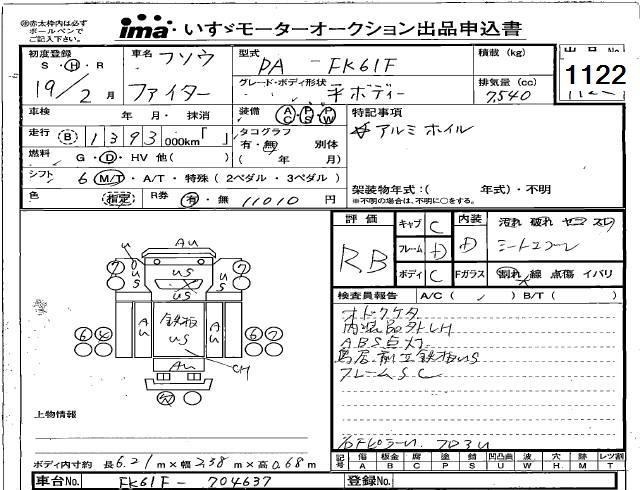 ㊟赤太枠内は必ず
ボールペンで
ご記入下さい。
ima いすゞモーターオークション出品申込書
初度登録 車名 フソウ 型式 積載 (kg) 出品No
S・H・R PA - FK61F 1122
19/2月 ファイター グレード・ボディ形状 平ボディー 排気量 (cc)
7,540
車検 年 月・ 抹消 装備 AC PS PW 特記事項
走行 B 1 3 9 3 000km「 」 タコグラフ アルミホイル
有・無 別体
燃料 G・D・HV 他( ) ( 年 月)
シフト 6 M/T・A/T・特殊(2ペダル・3ペダル)
架装物年式:( 年式)・不明
色 指定 R券 有・無 11010 円 ※不明の場合は、不明に○をする。
評価 キャブ C 内装 汚れ 破れ
RB フレーム D D
ボディ C Fガラス 割れ 線 点傷 イバリ
検査員報告 A/C( ) B/T( )
オドクケタ
内装品外しH
ABS点灯
鳥居前立鉄板US
フレームSC
Au
U US US
US
Au 鉄板 US Au
Au CH
上物情報
ボディ内寸約 長6.21m×幅2.38m×高0.68m
記号 傷 板金 腐 塗 錆 凹凸曲 波 穴 跡 レツ割
A B C P S U W H M T
車台No. FK61F-704637 登録No.